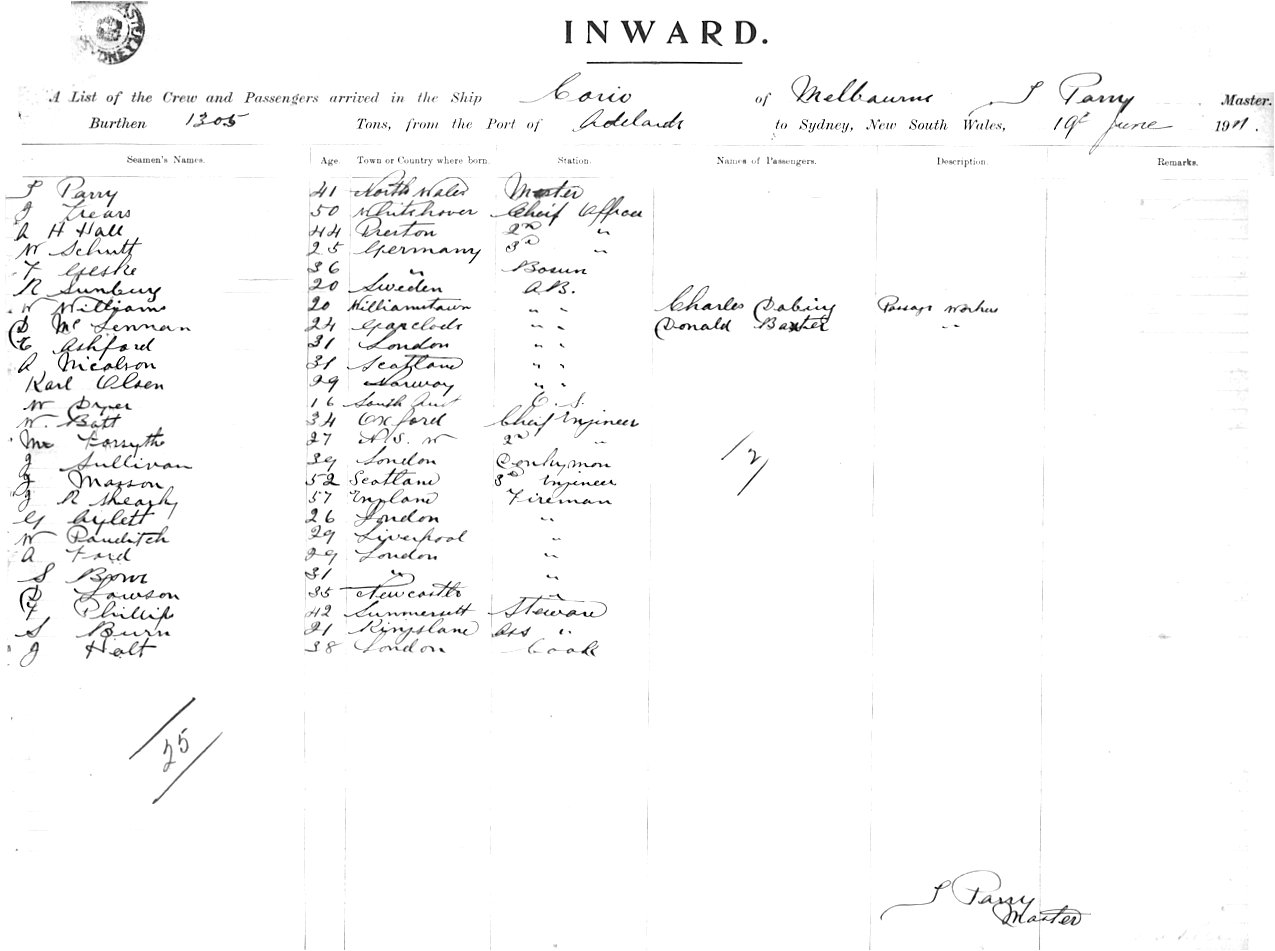 INWARD.
A List of the Crew and Passengers arrived in the Ship Corio of Melbourne Parry Master.
Burthen 1305 Tons, from the Port of Adelaide to Sydney, New South Wales, 19th June 1911.
Seamen's Names. Age. Town or Country where born. Station. Names of Passengers. Description. Remarks.
Parry 41 North Wales Master
J 50 Cheif Officer
A H Hall 44 Preston 2nd "
W Schutt 25 Germany 3rd "
F Geske 36 " Bosun
R Sunbury 20 Sweden A.B.
W Williams 20 Williamstown " " Charles Passage Workers
D McLennan 24 " " Donald Baxter " "
E Ashford 31 London " "
A Nicolson 31 Scotland " "
Karl Olsen 29 Norway " "
W Dyer 16 South Aust O.S.
W. Batt 34 Oxford Cheif Engineer
Forsyth 27 N.S.W 2nd "
J Sullivan 39 London Donkyman
J Masson 52 Scotland 3rd Engineer
J R 57 England Fireman
G Aylett 26 London "
W 29 Liverpool "
A Ford 29 London "
S 31 " "
D Lawson 35 Newcastle "
F Phillip 42 Summersett Steward
S Burn 21 Kingsland Ass "
J Holt 38 London Cook
2
25
Parry
Master